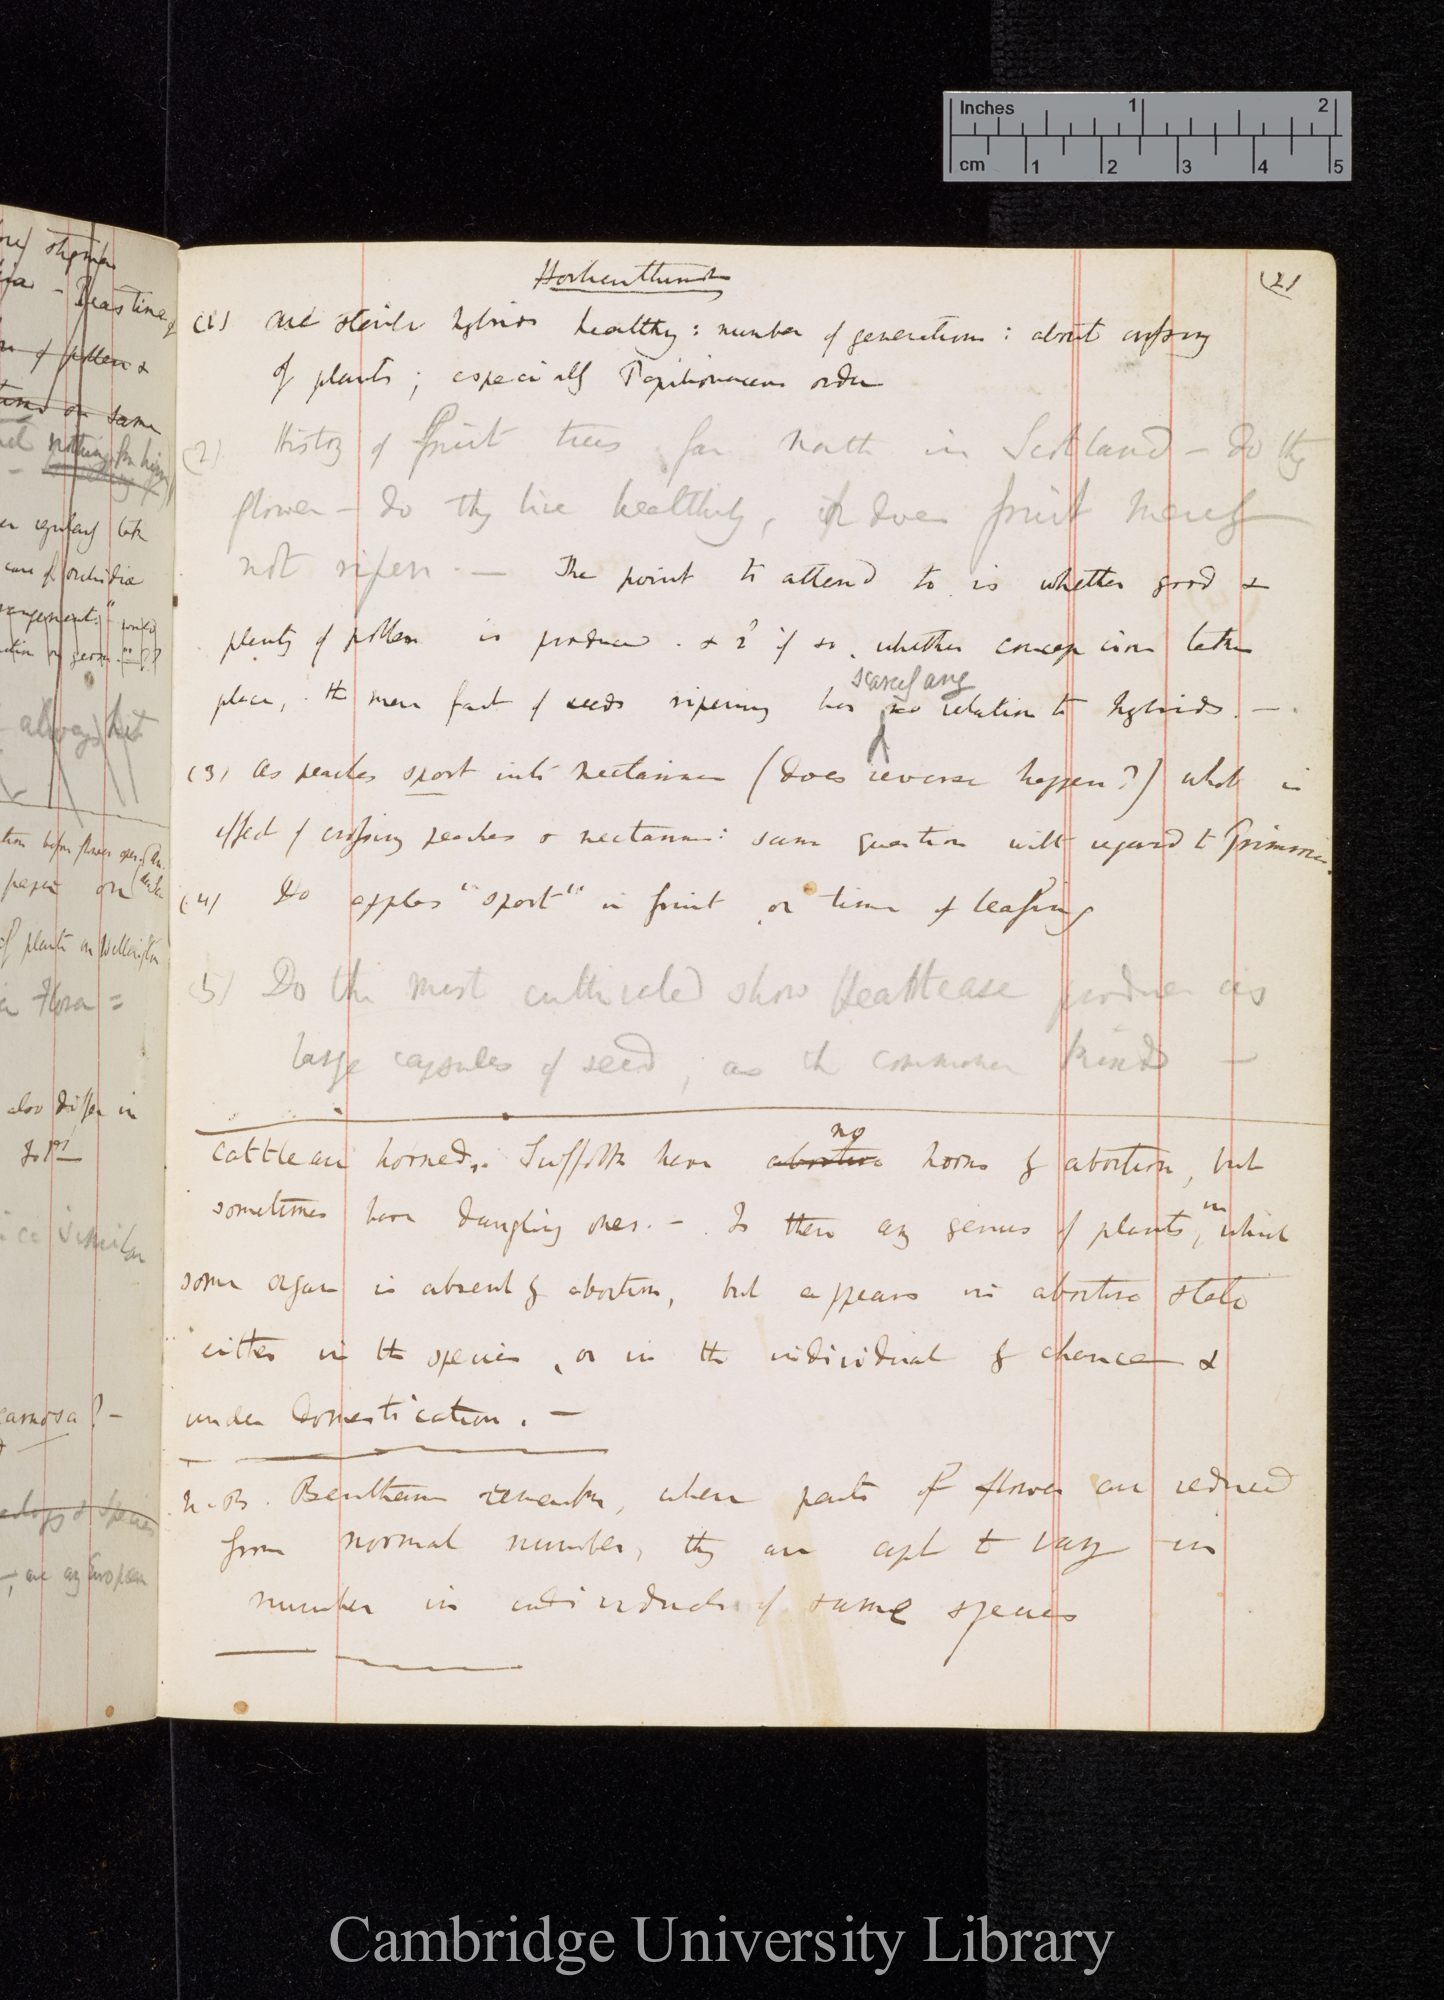 Inches 1 2
cm 1 2 3 4 5
Horticulturist
(21
(1) Are sterile hybrids healthy: number of generations: about crossing
of plants; especially Papilionaceous order
(2) History of fruit trees far North in Scotland – do they
flower – do they live healthily, & does fruit merely
not ripen. — The point to attend to is whether good &
plenty of pollen is produced. & 2d if so, whether conception takes
place, the mere fact of seeds ripening has no relation to hybrids. —
scarcely any
(3) As peaches sport into nectarines (does reverse happen?) what is
effect of crossing peaches & nectarines: same question with regard to
(4) Do apples "sport" in fruit or time of leafing
(5) Do the most cultivated show Heartsease produce as
large capsules of seed, as the common kinds —
no
Cattle are horned, Suffolk have abortive horns by abortion, but
sometimes have dangling ones. – Is there any genus of plants, in which
some organ is absent by abortion, but appears in abortive state
either in the species, or in the individual by chance &
under domestication. —
N.B. Bentham remarks, when parts of flower are reduced
from normal number, they are apt to vary in
number in individuals of same species
stigma
of pollen &
on same
nothing for him
regularly take
care of orchidiae
always hit
of plants on Wellington
Flora =
also differ in
similar
carnosa? –
& Species
are any European
Cambridge University Library